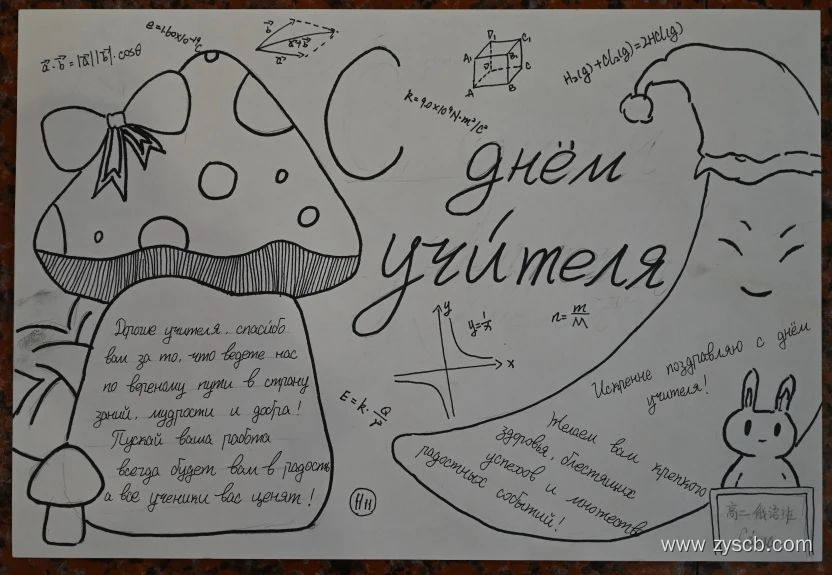 a⃗·b⃗=|a⃗||b⃗|·cosθ
e=1.60×10⁻¹⁹C
b⃗
a⃗+b⃗
a⃗
D₁ C₁
A₁ B₁
D C
A B
K=9.0×10⁹N·m²/C²
H₂(g)+Cl₂(g)=2HCl(g)
С
днём
учи́теля
Дорогие учителя, спасибо
вам за то, что ведете нас
по верному пути в страну
заний, мудрости и добра!
Пускай ваша работа
всегда будет вам в радость
а все ученики вас ценят!
y
y=1/x
x
n=m/M
E=k·Q/r²
Нн
Искренне поздравляю с днём
учителя!
Желаем вам крепкого
здоровья, блестящих
успехов и множеств
радостных событий!
高二俄语班
www.zyscb.com